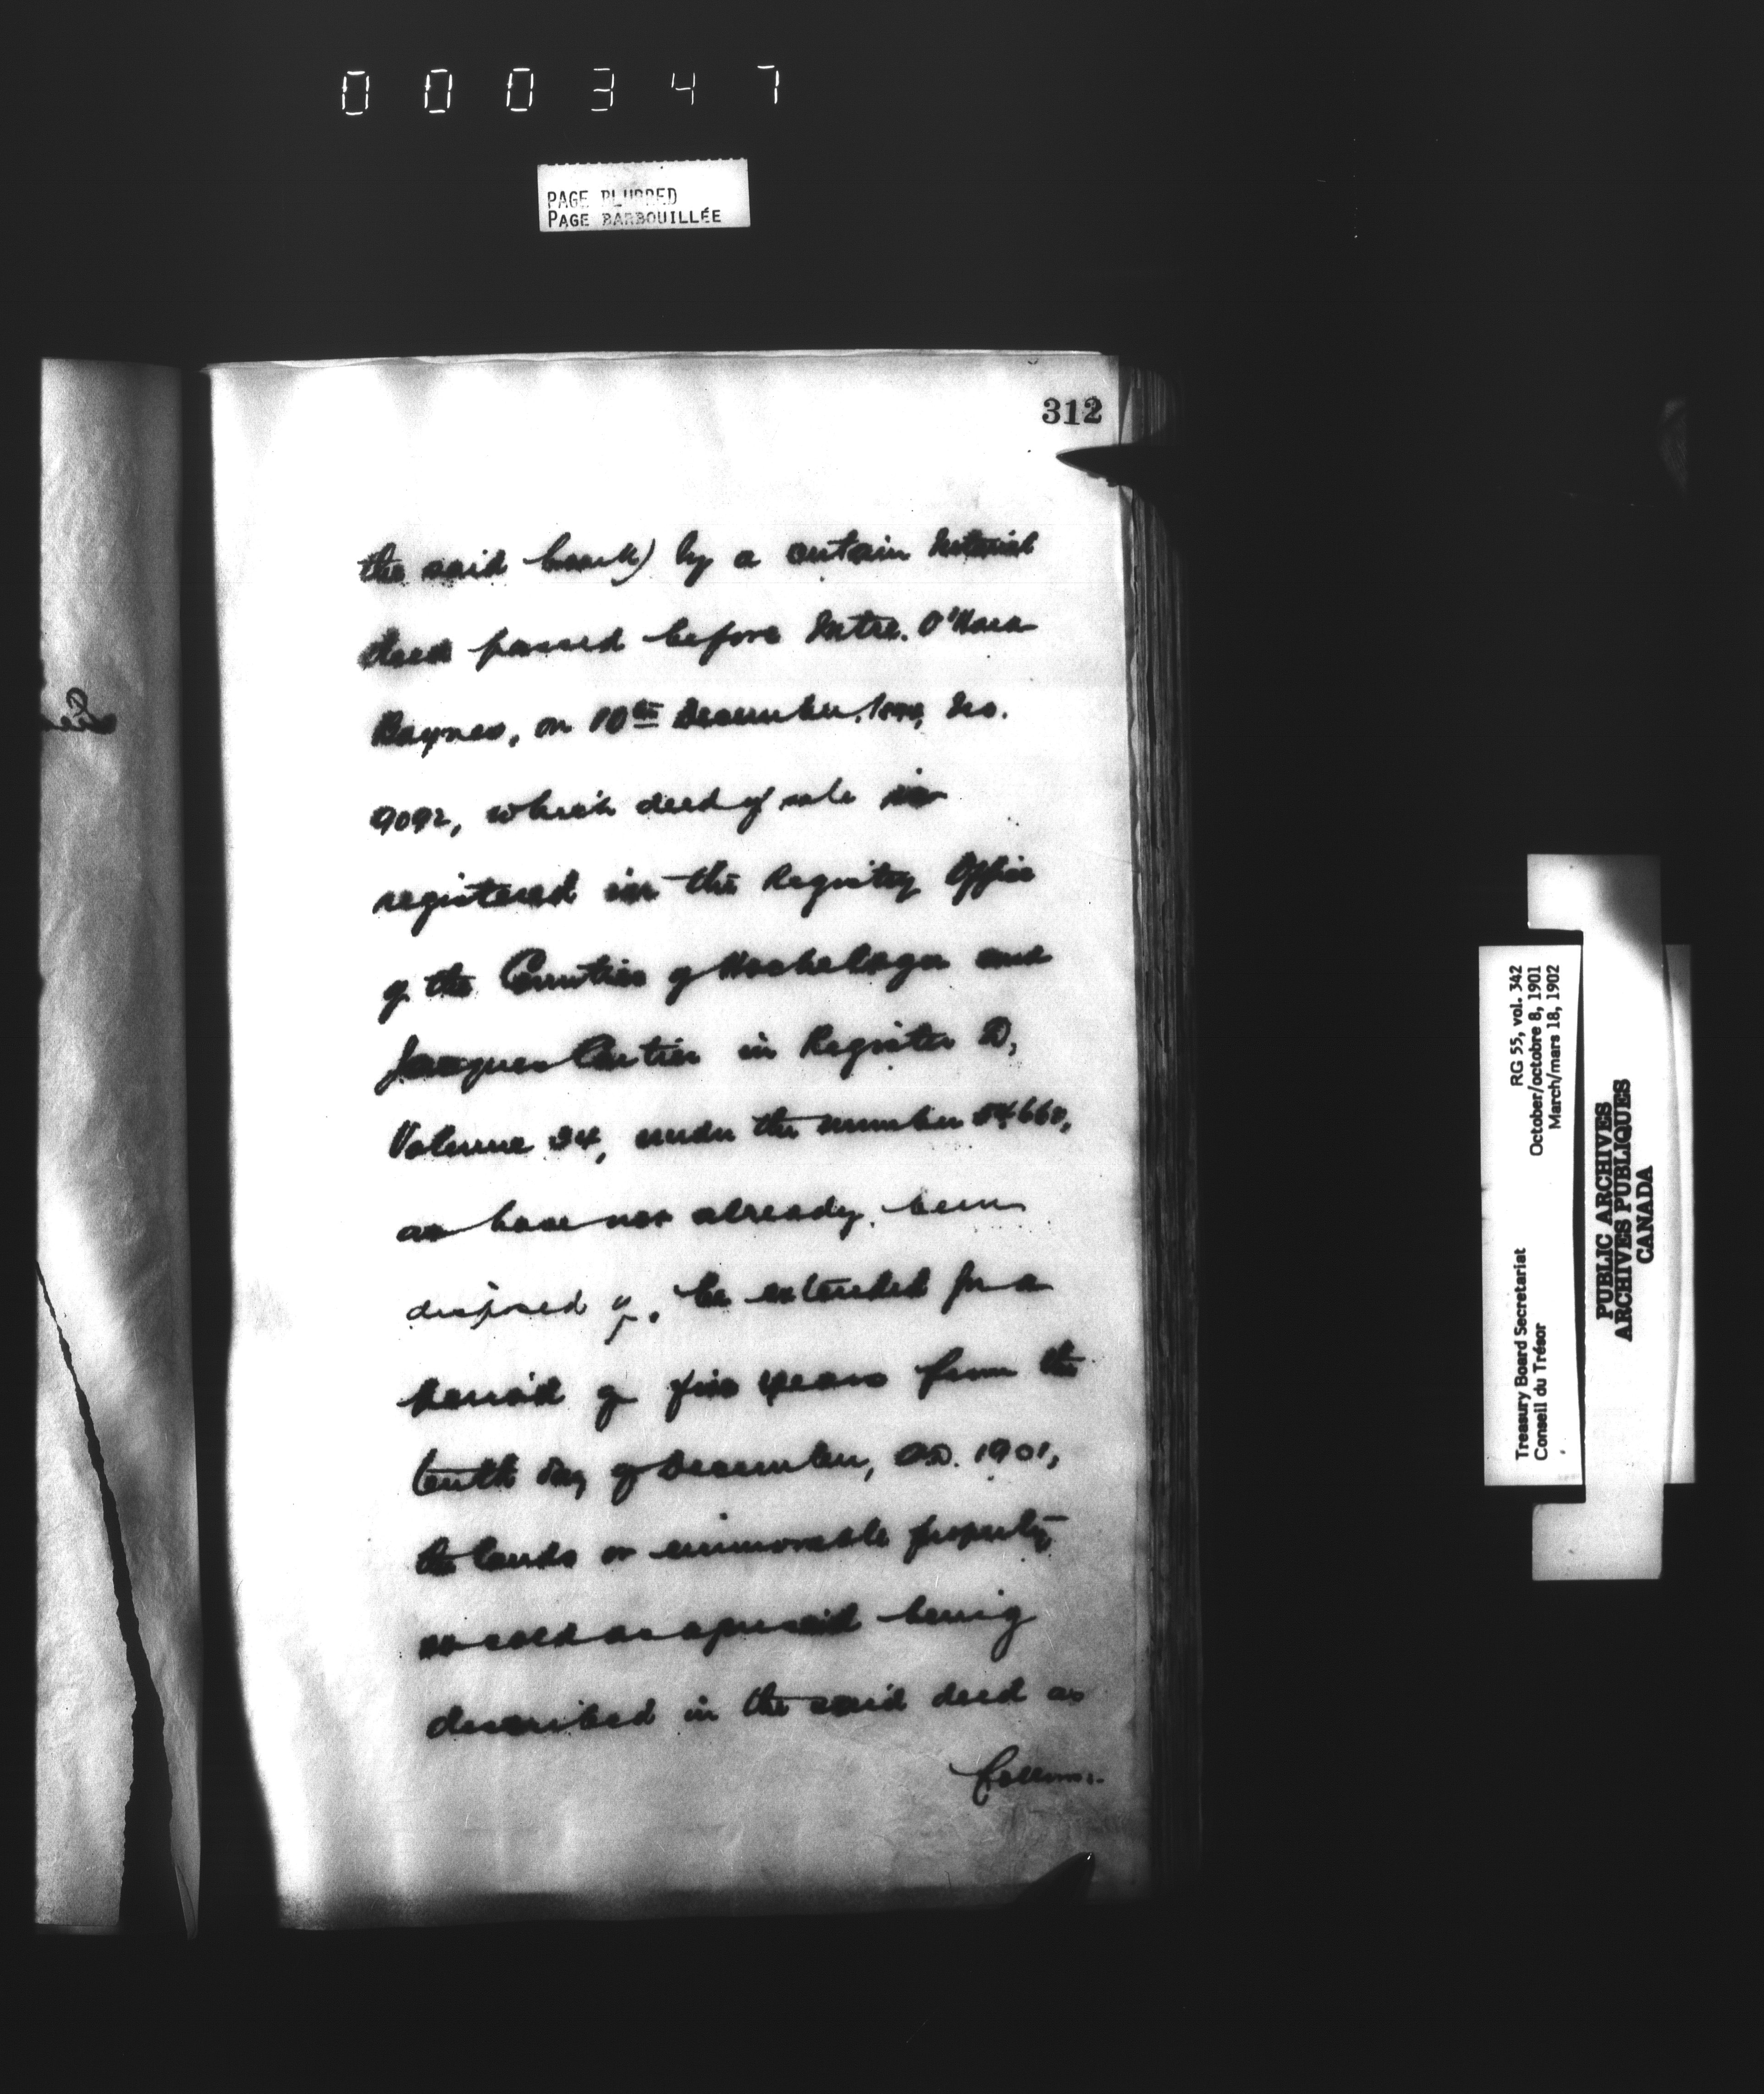 000347
PAGE BLURRED
PAGE BARBOUILLÉE
312
the said bank) by a certain Notarial
deed passed before Notre. O'Hara
Baynes, on 10th December, No.
9092, which deed of sale is
registered in the Registry Office
of the Counties of Hochelaga and
Jacques Cartier in Register D,
Volume 34, under the number 54660,
as have not already been
disposed of, be extended for a
period of five years from the
tenth day of December, A.D. 1901,
the lands or immovable property
so sold as aforesaid being
described in the said deed as
follows:-
RG 55, vol. 342
October/octobre 8, 1901
March/mars 18, 1902
Treasury Board Secretariat
Conseil du Trésor
PUBLIC ARCHIVES
ARCHIVES PUBLIQUES
CANADA